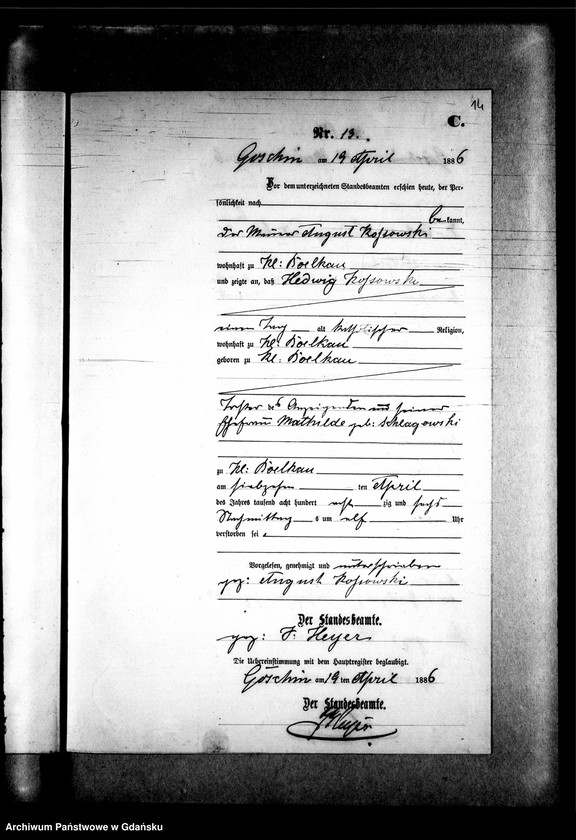 14
C.
Nr. 13.
Göschin am 19 April 1886
Vor dem unterzeichneten Standesbeamten erschien heute, der Per-
sönlichkeit nach
be kannt,
Der Maurer August Kossowski
wohnhaft zu Kl: Boelkau
und zeigte an, daß Hedwig Kossowski
einen Tag alt katholischer Religion,
wohnhaft zu Kl: Boelkau
geboren zu Kl: Boelkau
Tochter des Anzeigenden und seiner
Ehefrau Mathilde geb: Schlagowski
zu Kl: Boelkau
am siebzehn ten April
des Jahres tausend acht hundert acht zig und sechs
Nachmittag s um elf Uhr
verstorben sei.
Vorgelesen, genehmigt und unterschrieben
gez: August Kossowski
Der Standesbeamte.
gez: F. Heyer
Die Uebereinstimmung mit dem Hauptregister beglaubigt.
Göschin am 19 ten April 1886
Der Standesbeamte.
Heyer
Archiwum Państwowe w Gdańsku